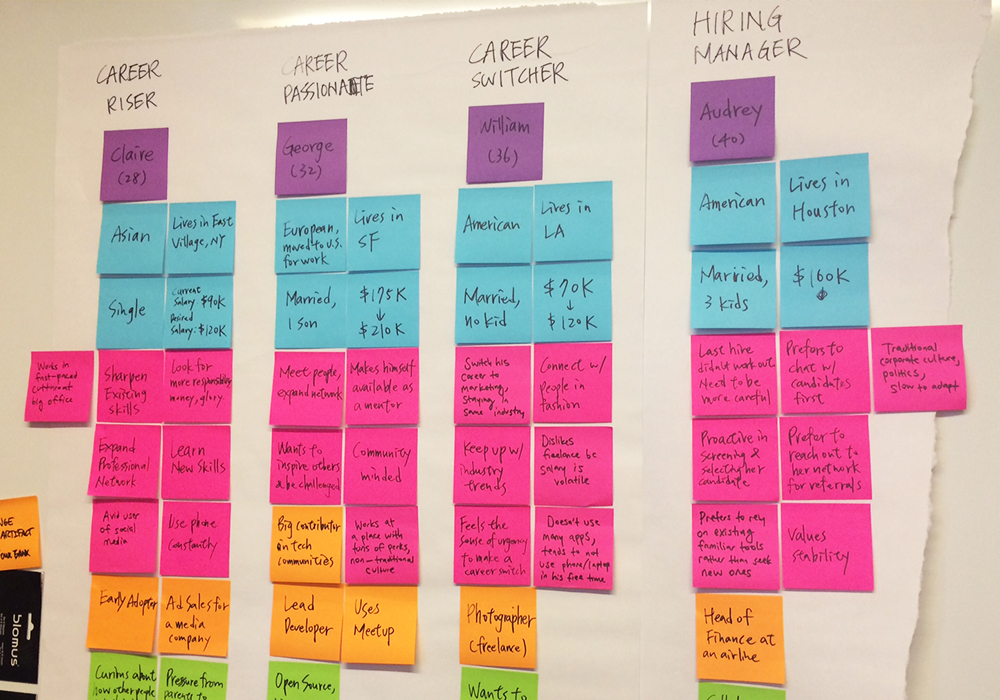 CAREER
RISER
Claire
(28)
Asian
Lives in East
Village, NY
Single
Current
Salary $90K
Desired
Salary: $120K
Works in
fast-paced
cutthroat
big office
Sharpen
Existing
Skills
Look for
more responsibility
money, glory
Expand
Professional
Network
Learn
New Skills
Avid user of
social
media
Use phone
constantly
Early Adopter
Ad Sales for
a media
company
Curious about
how other people
Pressure from
parents to
CAREER
PASSIONATE
George
(32)
European,
moved to U.S.
for work
Lives in
SF
Married,
1 son
$175K
↓
$210K
Meet people,
expand network
Makes himself
available as
a mentor
Wants to
inspire others
& be challenged
Community
minded
Big contributor
in tech
communities
Works at
a place with
tons of perks,
non-traditional
culture
Lead
Developer
Uses
Meetup
Open Source,
CAREER
SWITCHER
William
(36)
American
Lives in
LA
Married,
no kid
$70K
↓
$120K
Switch his
career to
marketing,
staying in
same industry
Connect w/
people in
fashion
Keep up w/
industry
trends
Dislikes
freelance bc
salary is
volatile
Feels the
sense of urgency
to make a
career switch
Doesn't use
many apps,
tends to not
use phone/laptop
in his free time
Photographer
(freelance)
Wants to
HIRING
MANAGER
Audrey
(40)
American
Lives in
Houston
Married,
3 kids
$160K
Last hire
didn't work out
Need to be
more careful
Prefers to
chat w/
candidates
first
Traditional
corporate culture,
politics,
slow to adapt
Proactive in
screening &
selecting her
candidate
Prefer to
reach out to
her network
for referrals
Prefers to rely
on existing
familiar tools
rather than seek
new ones
Values
Stability
Head of
Finance at
an airline
ARTIFACT
blomus